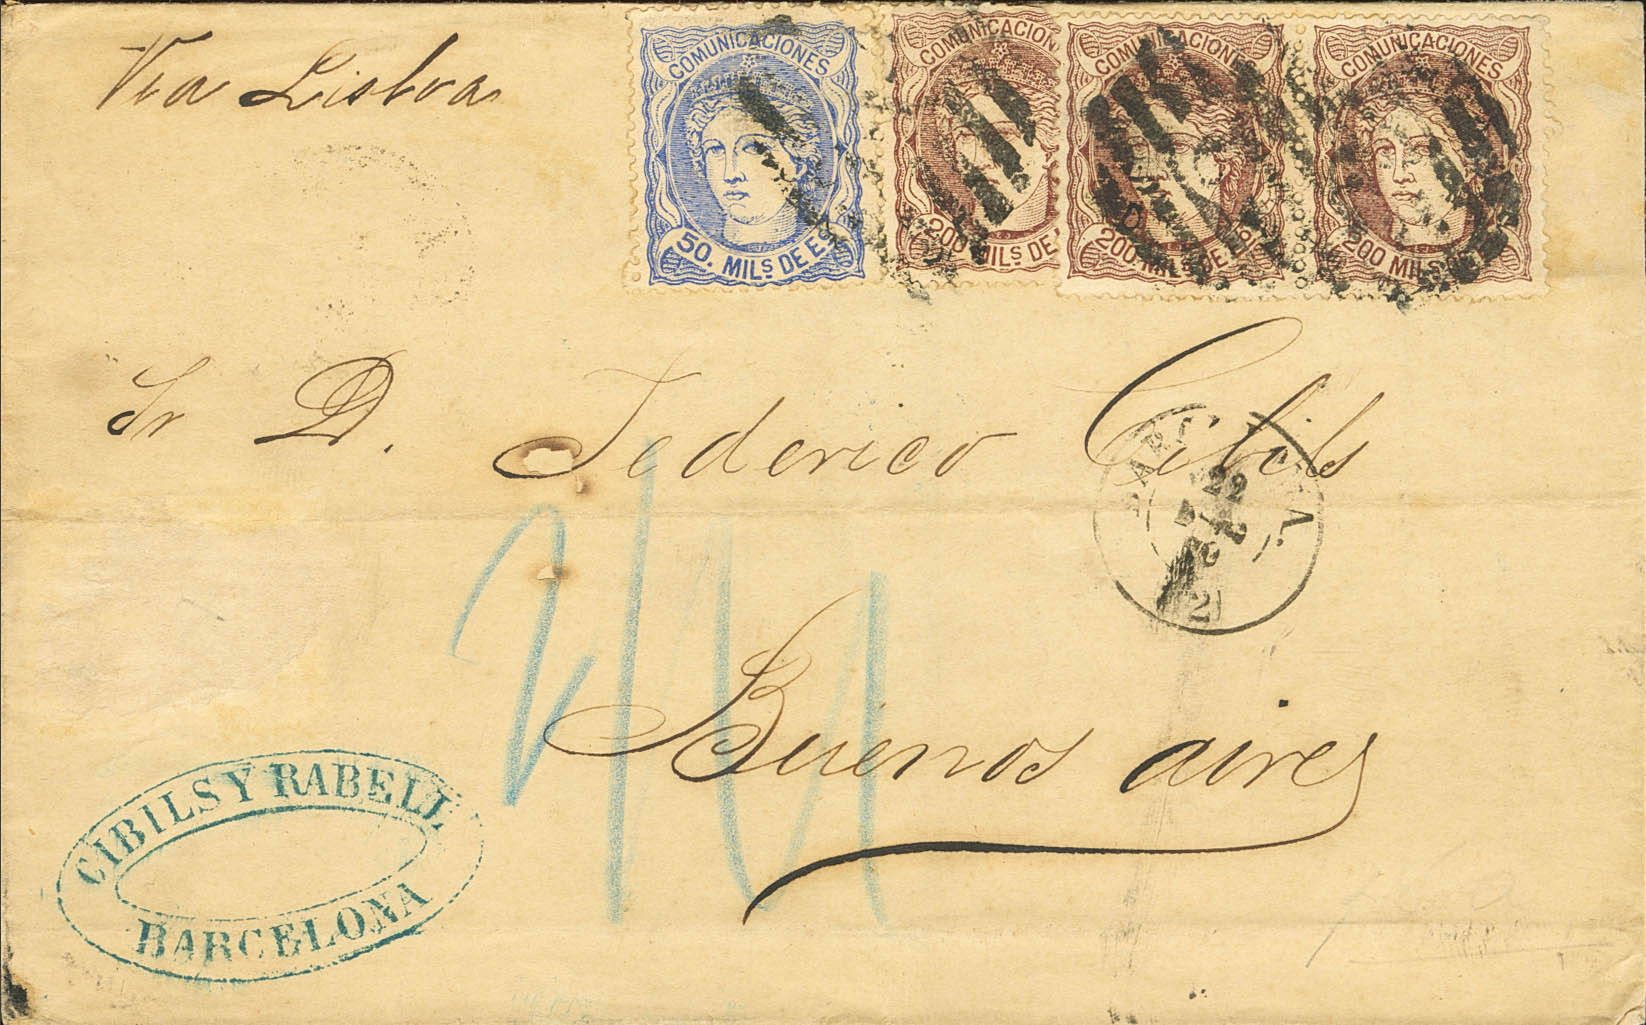 Via Lisboa
COMUNICACIONES
50. MILS DE ES
COMUNICACION
200 MILS DE
COMUNICACIONES
200 MILS DE
COMUNICACIONES
200 MILS DE E
Sr D. Federico Cibils
22
DIC
70
2
Buenos aires
CIBILS Y RABELL
BARCELONA